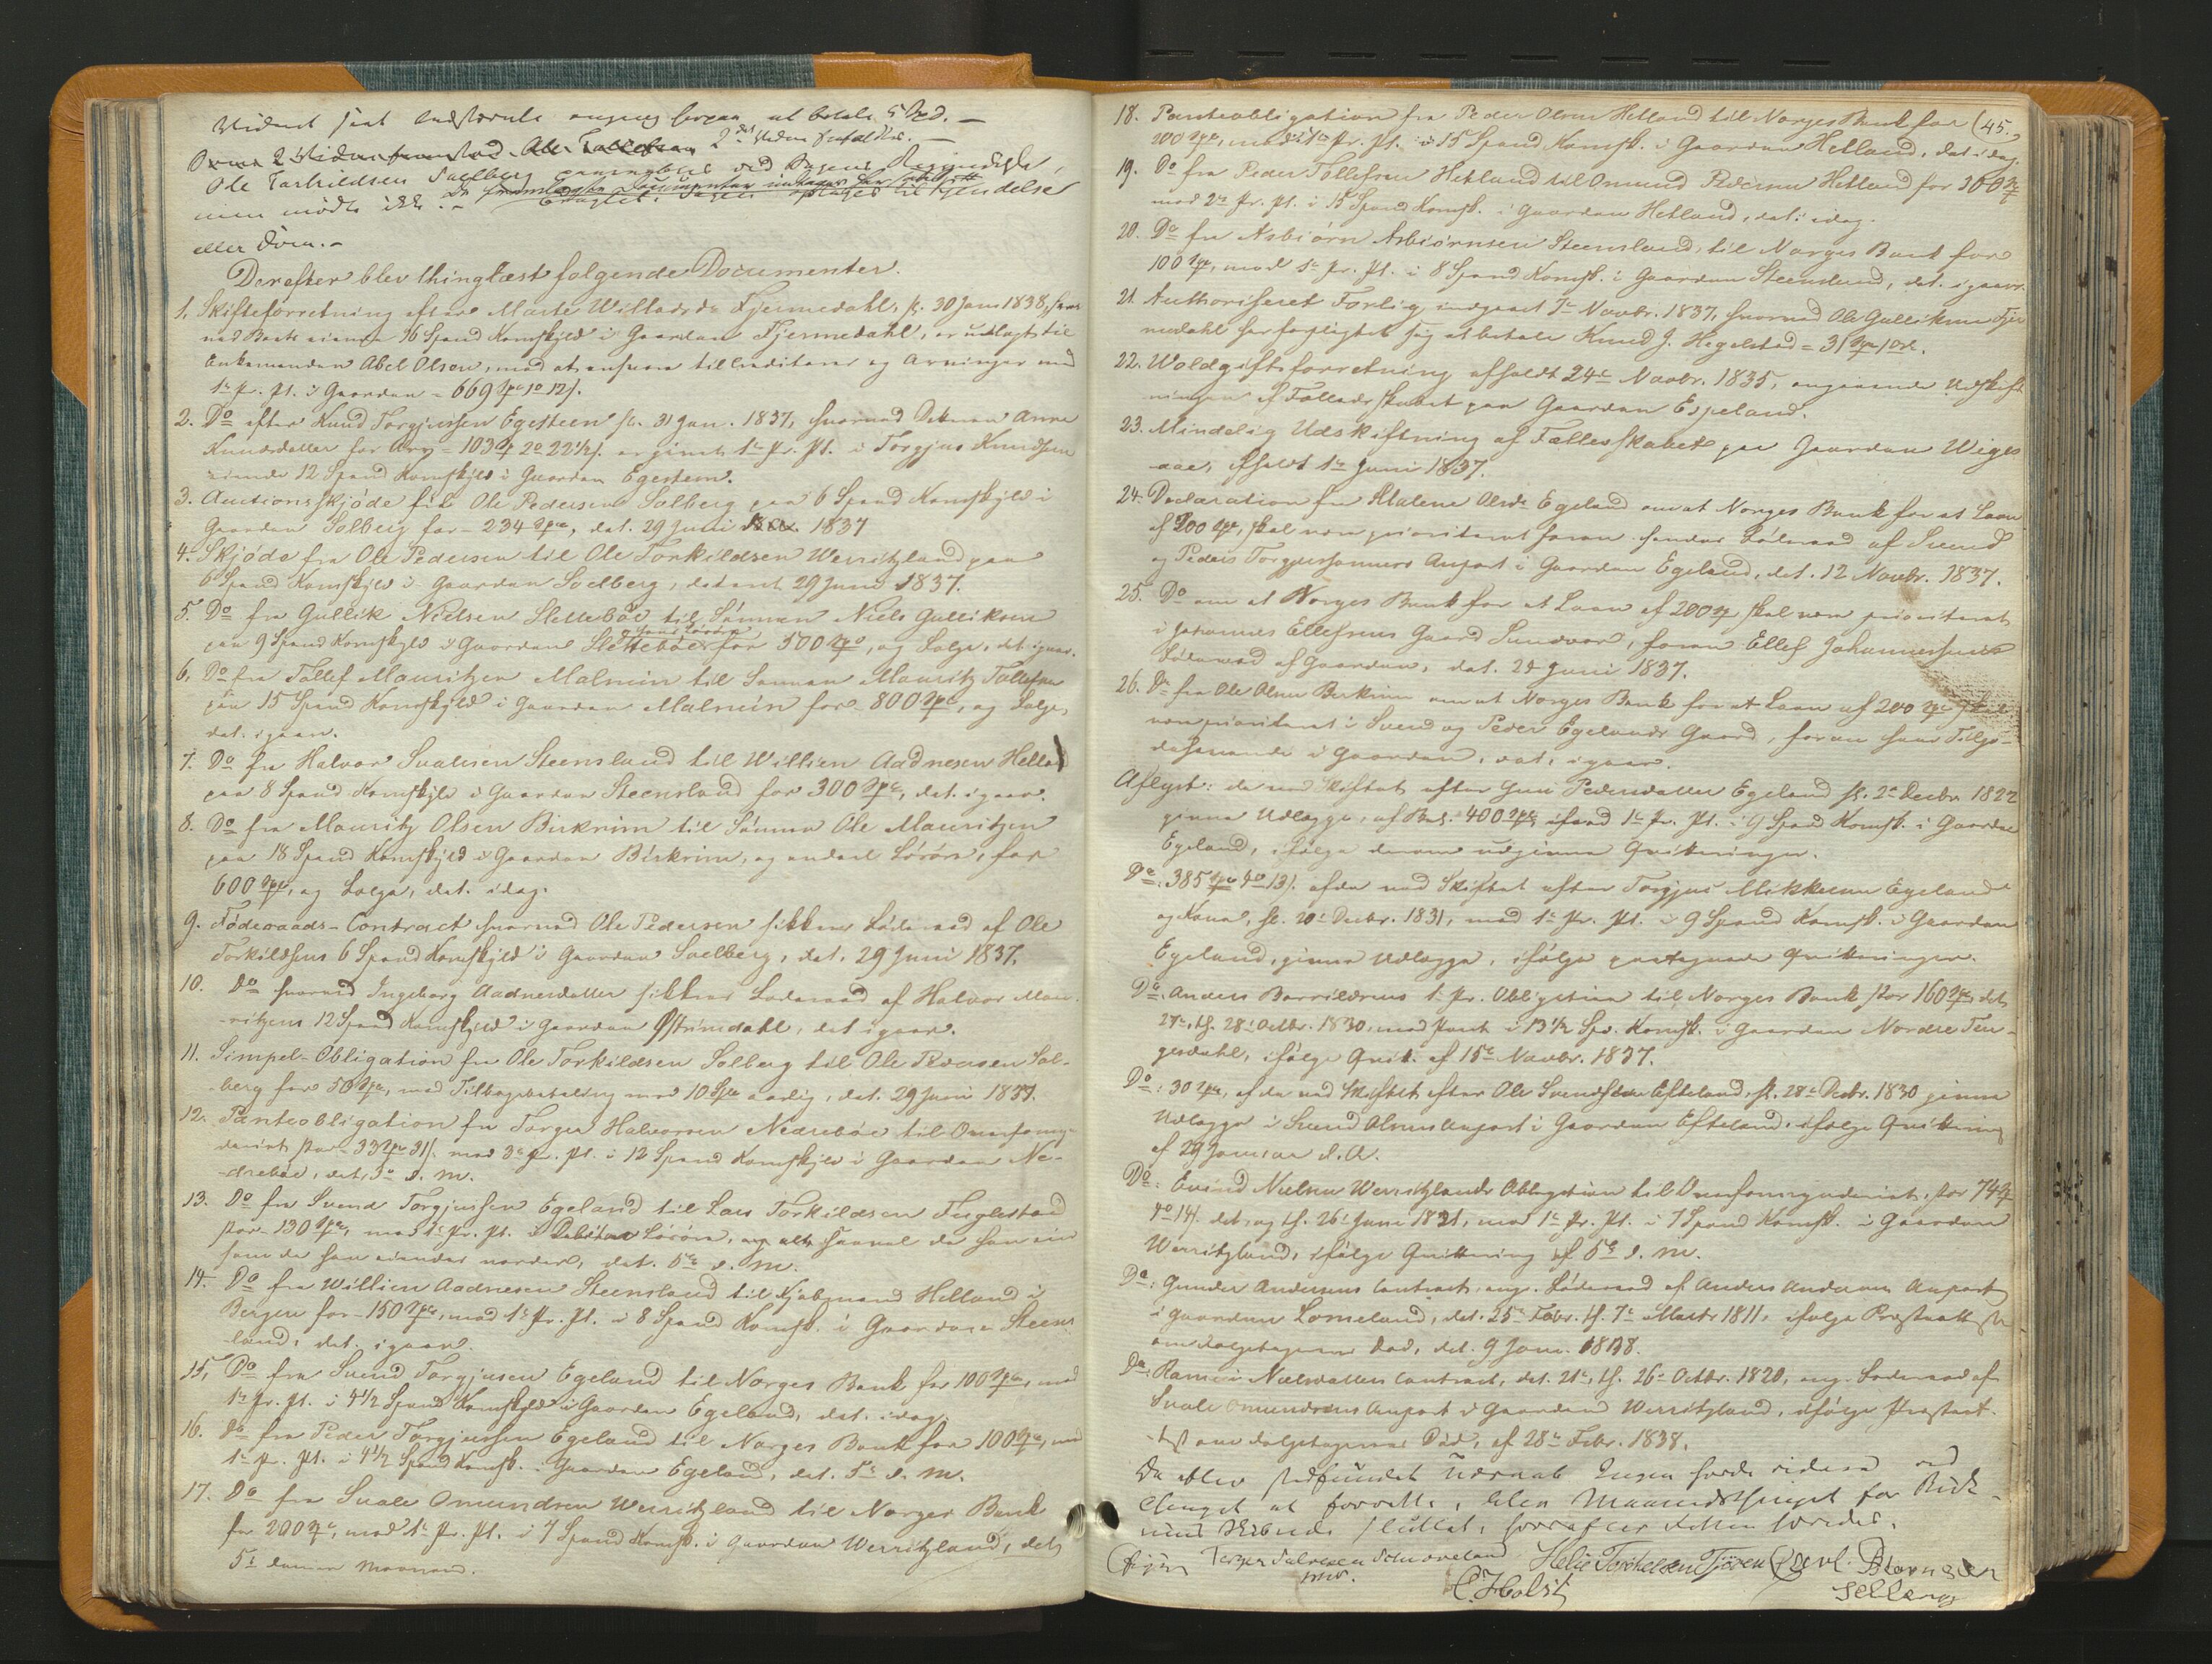 at betale 5 Spd. –
Ole Torkildsen Soelberg paaraabtes ved Sagens
men mødte ikke. – Sagen optages til Kjendelse
eller Dom. –
Derefter blev thinglæst følgende Documenter.
1. Skifteforretning efter Marte Willadsdr Fjermedahl, sl. 30 Janr 1838, hvor
ved Boets eiende 36 Spand Kornskyld i Gaarden Fjermedahl, er udlagt til
Enkemanden Abel Olsen, mod at ansvare til Creditorer og Arvinger med
1te Pr. Pt. i Gaarden = 669 Spd 1 ort 12 s.
2. Do efter Knud Torgjussen Egesteen sl. 31 Jan. 1837, hvorved Datteren Anne
Knudsdatter for Arv = 103 Spd 2 ort 22½ s. er givet 1te Pr. Pt. i Torgjus Knudsens
eiende 12 Spand Kornskyld i Gaarden Egesteen.
3. Auctionsskjøde fra Ole Pedersen Solberg paa 6 Spand Kornskyld i
Gaarden Solberg for 234 Spd, dat. 29 Juni 1837
4. Skjøde fra Ole Pedersen til Ole Torkildsen Werritzland paa
6 Spand Kornskyld i Gaarden Soelberg, dateret 29 Juni 1837.
5. Do fra Gullik Nielsen Slettebøe til Sønnen Niels Gulliksen
paa 9 Spand Kornskyld i Gaarden Slettebøe for 500 Spd, og Følge, dat. igaar.
6. Do fra Tollef Mauritzen Malmein til Sønnen Mauritz Tollefsen
paa 15 Spand Kornskyld i Gaarden Malmein for 800 Spd, og Følge,
dat. igaar.
7. Do fra Halvor Svalesen Steensland til Willien Aadnesen Helland
paa 8 Spand Kornskyld i Gaarden Steensland for 300 Spd, dat. igaar.
8. Do fra Mauritz Olsen Birkrim til Sønnen Ole Mauritzen
paa 18 Spand Kornskyld i Gaarden Birkrim, og endeel Løsøre, for
600 Spd, og Følge, dat. idag.
9. Føderaads-Contract hvorved Ole Pedersen sikkres Føderaad af Ole
Torkildsens 6 Spand Kornskyld i Gaarden Soelberg, dat. 29 Juni 1837.
10. Do hvorved Ingeborg Aadnesdatter sikkres Føderaad af Halvor Mau-
ritzens 12 Spand Kornskyld i Gaarden Østrimdahl, dat igaar.
11. Simpel-Obligation fra Ole Torkildsen Solberg til Ole Pedersen Sol-
berg for 50 Spd, med Tilbagebetaling med 10 Spd aarlig, dat. 29 Juni 1837.
12. Panteobligation fra Torger Halvorsen Nedrebøe til Overformyn-
deriet stor 33 Spd 31 s. mod 3de Pr. Pt. i 12 Spand Kornskyld i Gaarden Ne-
drebøe, dat. 3de d. M.
13. Do fra Svend Torgjussen Egeland til Lars Torkildsen Fuglestad
stor 130 Spd, mod 1te Pr. Pt. i Debitors Løsøre, saavel de han eier
som de han eiendes vorder, dat. d. M.
14. Do fra Willien Aadnesen Steensland til Kjøbmand Helland i
Bergen for 150 Spd, mod 1te Pr. Pt. i 8 Spand Kornsk. i Gaarden Steens-
land, dat. igaar.
15. Do fra Svend Torgjusen Egeland til Norges Bank for 100 Spd, mod
1te Pr. Pt. i 4½ Spand Kornskyld i Gaarden Egeland, dat. idag.
16. Do fra Peder Torgjussen Egeland til Norges Bank for 100 Spd, mod
1te Pr. Pt. i 4½ Spand Kornsk. i Gaarden Egeland, dat. 5te d. M.
17. Do fra Svale Omundsen Werritzland til Norges Bank
for 200 Spd, mod 1te Pr. Pt. i 7 Spand Kornsk. i Gaarden Werritzland, dat.
5te denne Maaned.
45.
18. Panteobligation fra Peder Olsen Hetland til Norges Bank for
200 Spd, mod 1te Pr. Pt. i 15 Spand Kornsk. i Gaarden Hetland, dat. idag.
19. Do fra Peder Tollefsen Hetland til Omund Pedersen Hetland for 300 Spd
mod 2de Pr. Pt. i 15 Spand Kornsk. i Gaarden Hetland, dat. idag.
20. Do fra Asbiørn Asbiørnsen Steensland, til Norges Bank for
100 Spd, mod 1te Pr. Pt. i 8 Spand Kornsk. i Gaarden Steensland, dat. igaar.
21. Authoriseret Forlig indgaaet 7de Novbr. 1837, hvorved Ole Gulliksen Fjer-
medahl har forpligtet sig at betale Knud J. Hegelstad = 31 Spd 1 ort.
22. Woldgiftsforretning afholdt 24de Novbr. 1835, angaaende Udskift-
ningen af Fælledsskabet paa Gaarden Espeland.
23. Mindelig Udskiftning af Fælledsskabet paa Gaarden Wiges-
aae, afholdt 1te Juni 1837.
24. Declaration fra Malene Olsdr Egeland om at Norges Bank for et Laan
af 200 Spd, skal være prioriteret foran hendes Føderaad af Svend
og Peder Torgjussønners Anpart i Gaarden Egeland, dat. 12 Novbr. 1837.
25. Do om at Norges Bank for et Laan af 200 Spd skal være prioriteret
i Johannes Ellefsens Gaard Sundvor, foran Ellef Johannessens
Føderaad af Gaarden, dat. 29 Juni 1837.
26. Do fra Ole Olsen Birkrim om at Norges Bank for et Laan af 200 Spd skal
være prioriteret i Svend og Peder Egelands Gaard, foran hans Tilgo-
dehavende i Gaarden, dat. igaar.
Aflyst: de ved Skiftet efter Guri Pedersdatter Egeland sl. 2de Decbr 1822
givne Udlægge, af Beløb 400 Spd, imod 1te Pr. Pt. i 9 Spand Kornsk. i Gaarden
Egeland, ifølge derom udgivne Qvitteringer.
Do: 385 Spd 4 ort 13 s. af de ved Skiftet efter Torgjus Mikkelsen Egeland
og Kone, sl. 20de Decbr. 1831, med 1te Pr. Pt. i 9 Spand Kornsk. i Gaarden
Egeland, givne Udlægge, ifølge paategnede Qvitteringer.
Do: Anders Bovildsens 1te Pr. Obligation til Norges Bank stor 160 Spd, dat.
27de, tl. 28de Octbr. 1830, med Pant i 13½ Spd. Kornsk. i Gaarden Nordre Ten-
gesdahl, ifølge Qvit. af 15de Novbr. 1837.
Do: 30 Spd, af de ved Skiftet efter Ole Svendsen Efteland, sl. 28de Decbr. 1830 givne
Udlægge i Svend Olsens Anpart i Gaarden Efteland, ifølge Qvittering
af 29 Januar d. A.
Do: Eivind Nielsen Werritzlands Obligation til Overformynderiet, stor 74 Spd
4 ort 14 s. dat. og tl. 26de Juni 1821, med 1te Pr. Pt. i 7 Spand Kornsk. i Gaarden
Werritzland, ifølge Qvittering af 5te d. M.
Do: Gunder Andersens Contract, ang. Føderaad af Anders Andersens Anpart
i Gaarden Lomeland, dat. 25de Febr. tl. 7de Marts 1811, ifølge Præsteattest
om Folgetagernes Død, dat. 9 Janr. 1838.
Do: Nielsdatters Contract, dat. 21de, tl. 26de Octbr. 1820, ang. Føderaad af
Svale Omundsens Anpart i Gaarden Werritzland, ifølge Præsteat-
test om Folgetagernes Død, af 28de Febr. 1838.
Da Ingen havde videre ved
Thinget at forrette, blev Maanedsthinget for
sluttet, hvorefter Retten hævedes.
Torger Salvesen Schioveland Helie Torkelsen Tjøren
C. Holst